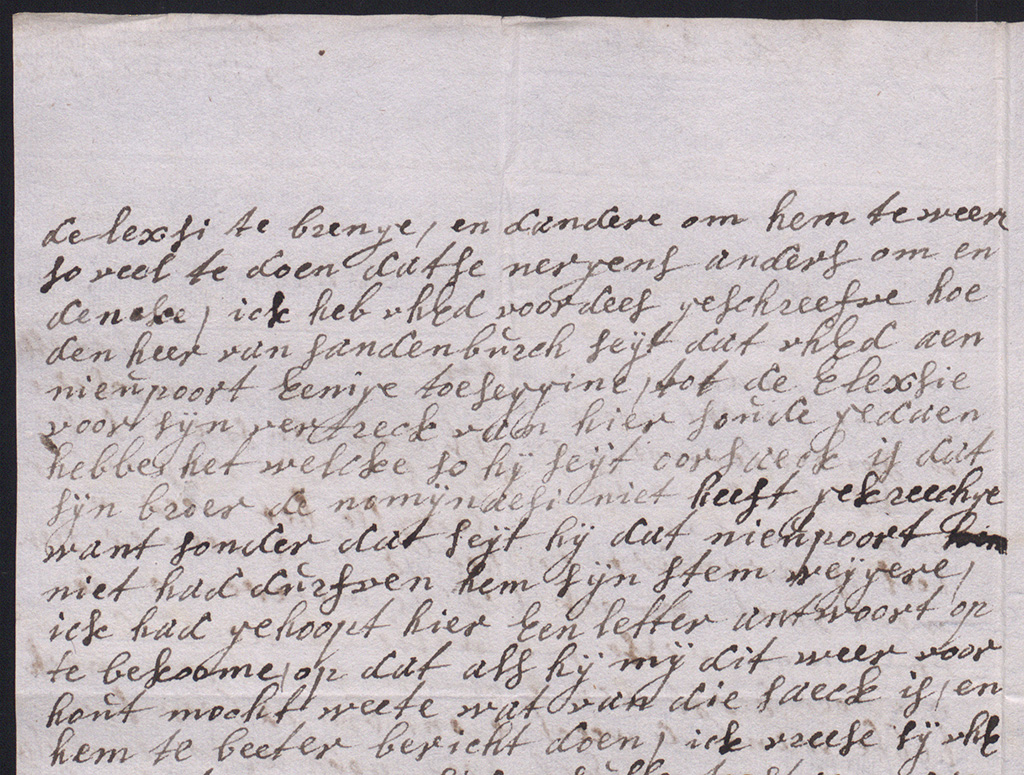 de lexsi te brenge, en dandere om hem te weere
so veel te doen datse nergens anders om en
dencke, ick heb uhEd voor dees geschreefve hoe
den heer van sandenburch seijt dat uhEd aen
nieupoort Eenige toesegginc, tot de Elexsie
voor sijn vertreck van hier soude gedaen
hebbe, het welcke so hij seijt oorsaeck is dat
sijn broer de nomijnaesi niet heeft gekreechge
want sonder dat seijt hij dat nieupoort
niet had durfven hem sijn stem weijgere,
ick had gehoopt hier Een letter antwoort op
te bekoome, op dat als hij mij dit weer voor
hout mocht weete wat van die saeck is, en
hem te beeter bericht doen, ick vreese sij uhE